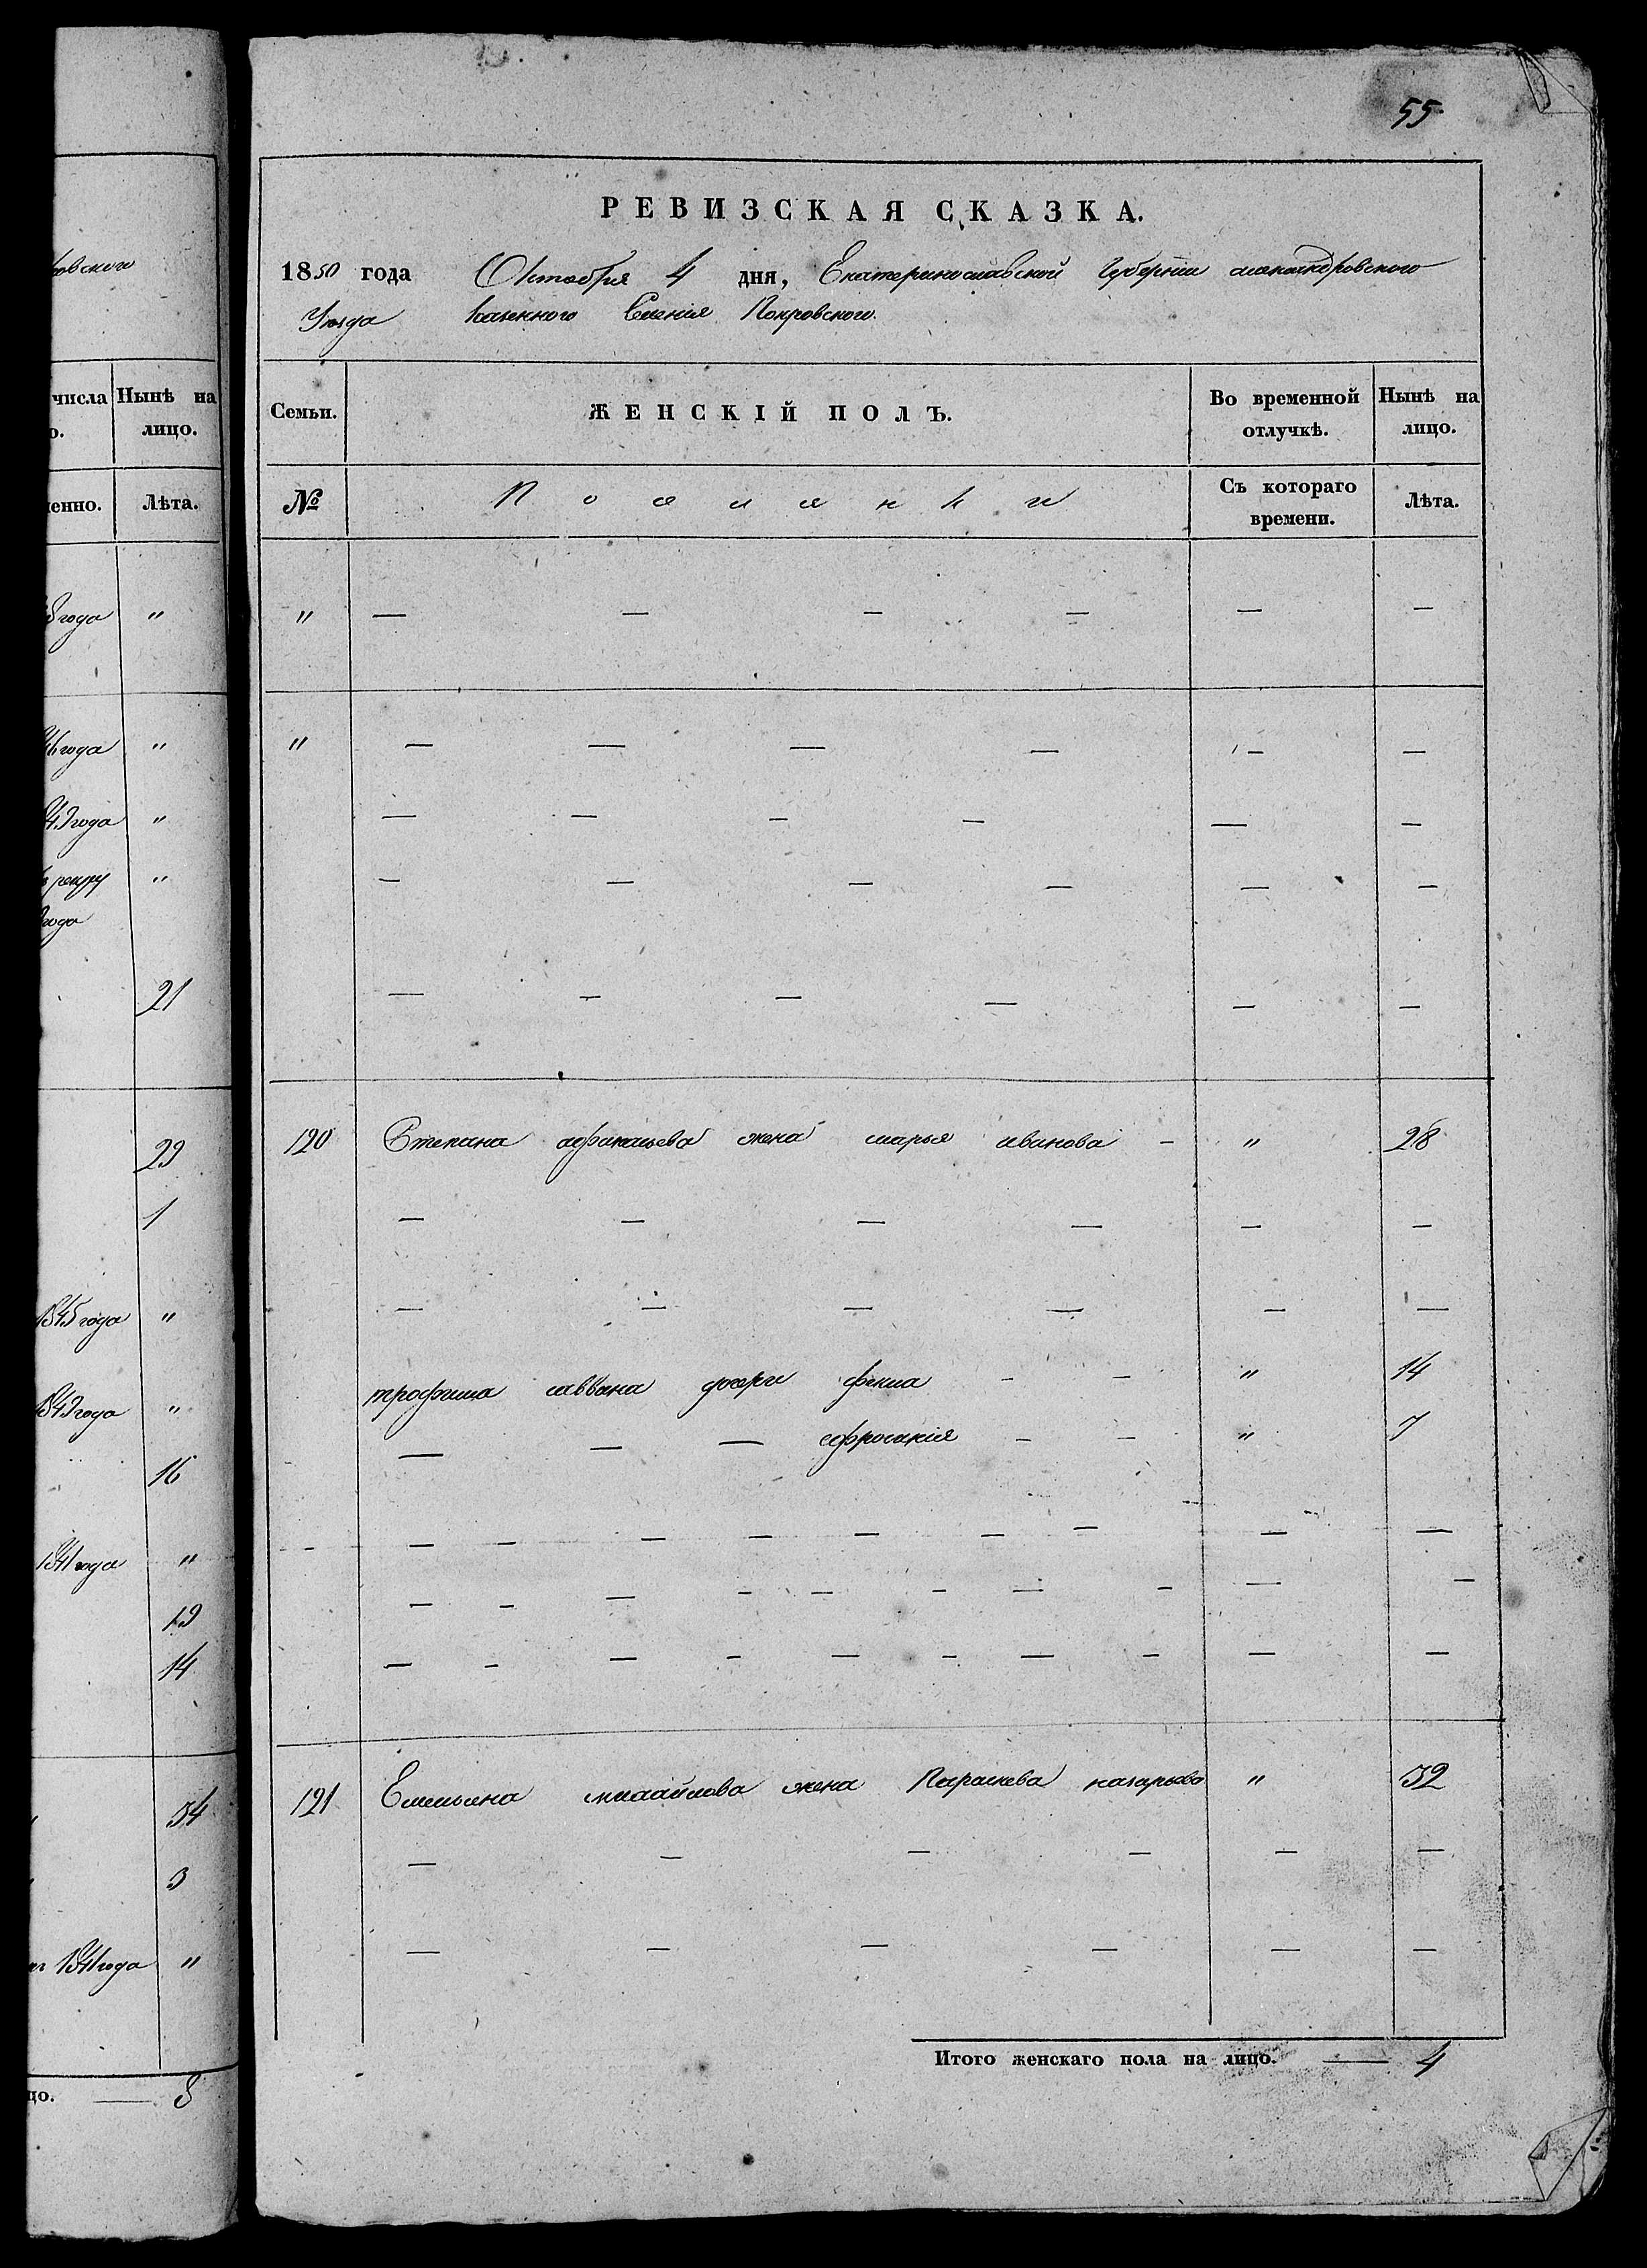 55
РЕВИЗСКАЯ СКАЗКА.
1850 года Октября 4 дня, Екатеринославской Губернии александровского
Уезда Казенного Селения Покровского.
вского
числа Нынѣ на
о. лицо.
енно. Лѣта.
года "
46 года "
года "
рекру "
года
21
29
1
1845 года "
года "
16
1841 года "
19
14
34
3
1841 года "
цо. — 3
Семьи. ЖЕНСКІЙ ПОЛЪ. Во временной отлучкѣ. Нынѣ на лицо.
№ Поселянки Съ котораго времени. Лѣта.
" — — — — — —
" — — — — — —
— — — — — —
— — — — — —
— — — — — —
120 Степана афанасьева жена марья иванова - " 28
— — — — — —
— — — — — —
трофима саввина дочери фекла - - " 14
— — — ефросинія - - " 7
— — — — — — — —
— — — — — — — — — —
— — — — — — — — — —
121 Емельяна михайлова жена Параскева назарьева " 32
— — — — — —
— — — — — —
Итого женскаго пола на лицо. — 4